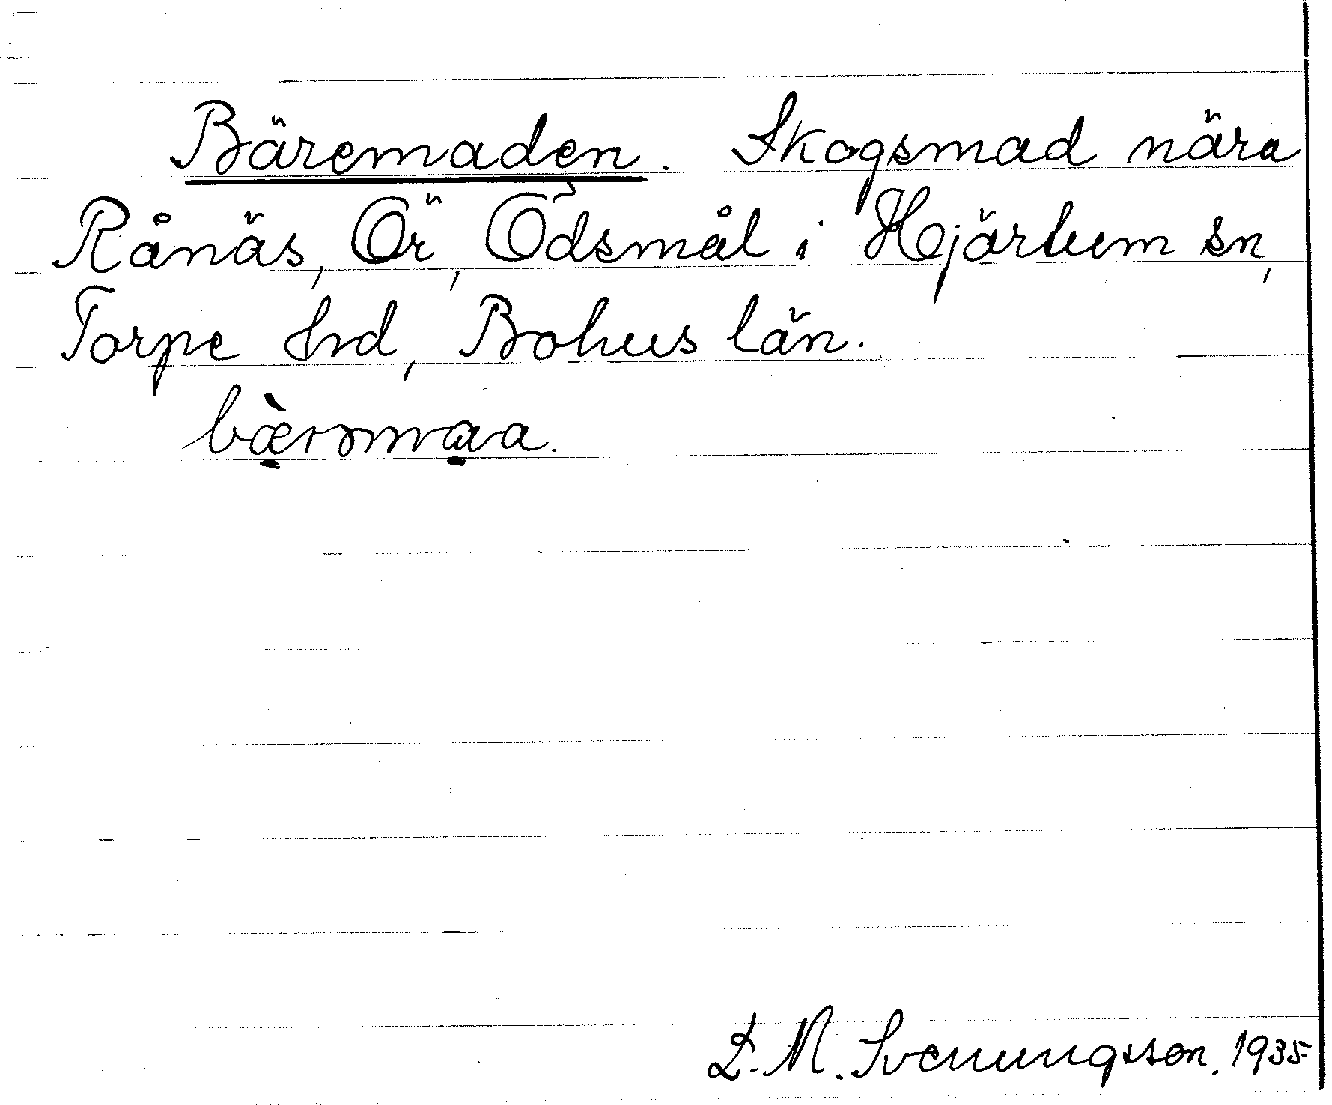 Bäremaden. Skogsmad nära
Rånäs, Ör, Ödsmål i Hjärtum sn,
Torpe hrd, Bohus län.
bæ̀rəmaa.
L. M. Svenungsson. 1935